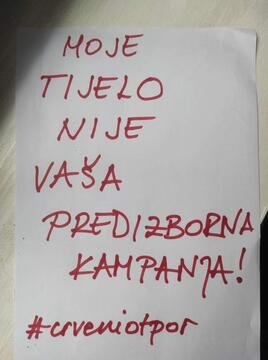 MOJE
TIJELO
NIJE
VAŠA
PREDIZBORNA
KAMPANJA!
#crveniotpor